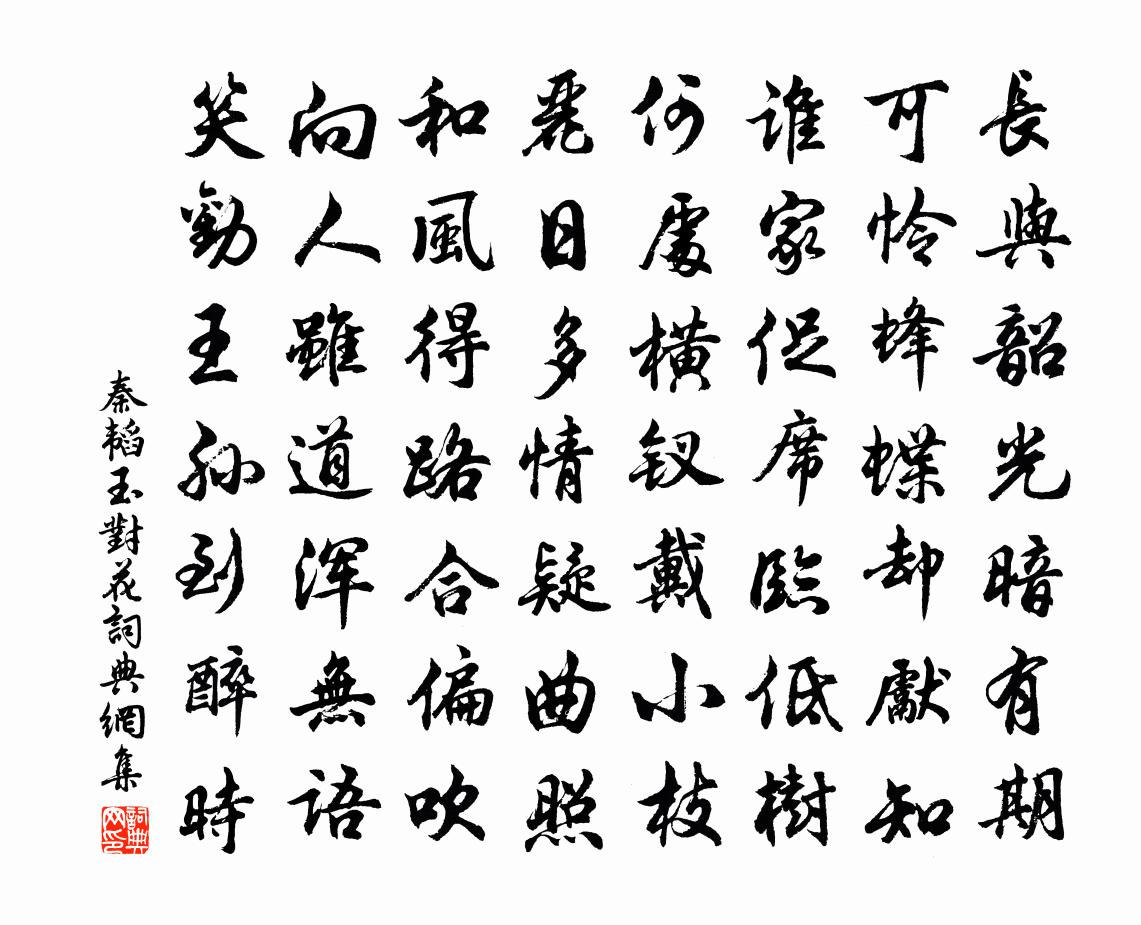 長與韶光暗有期
可怜蜂蝶却獻知
誰家促席臨低樹
何處橫釵戴小枝
麗日多情疑曲照
和風得路合偏吹
向人雖道渾無語
笑勸王孫到醉時
秦韬玉對花詞典網集
詞典
网印